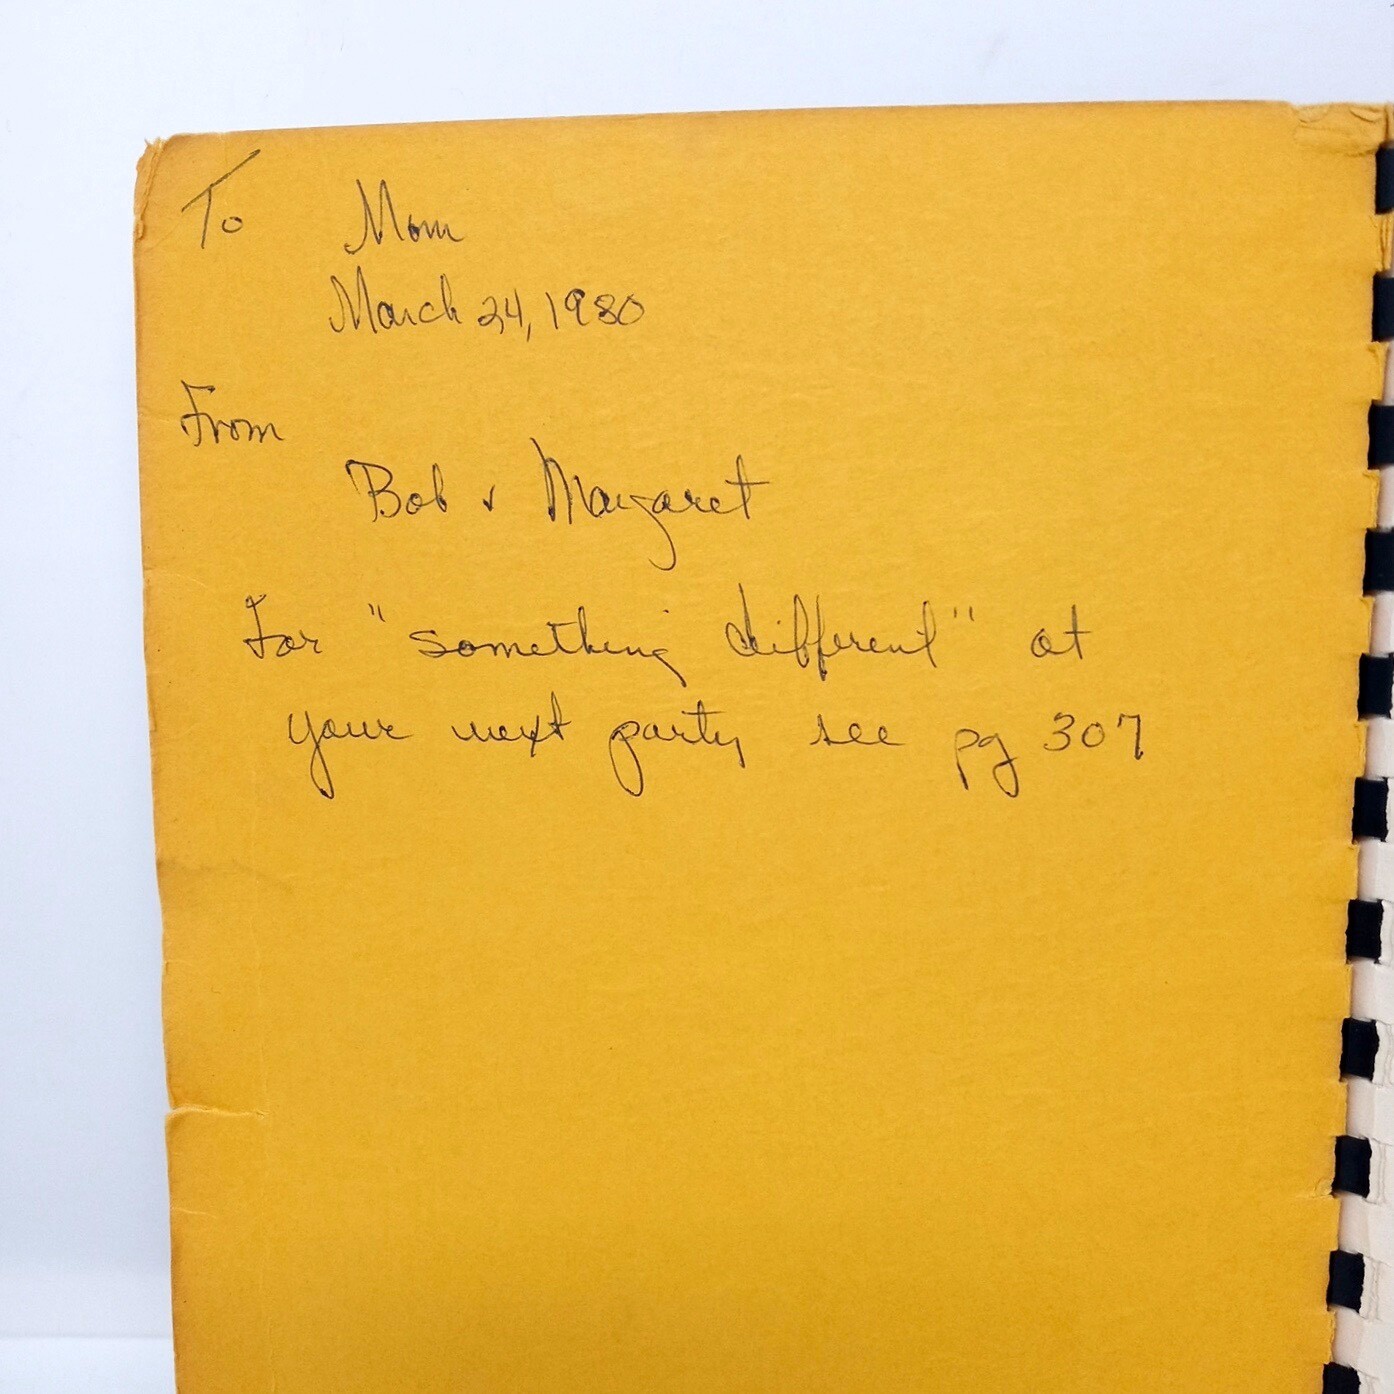 To Mom
March 24, 1980
From
Bob & Margaret
For "something different" at
your next party see pg 307